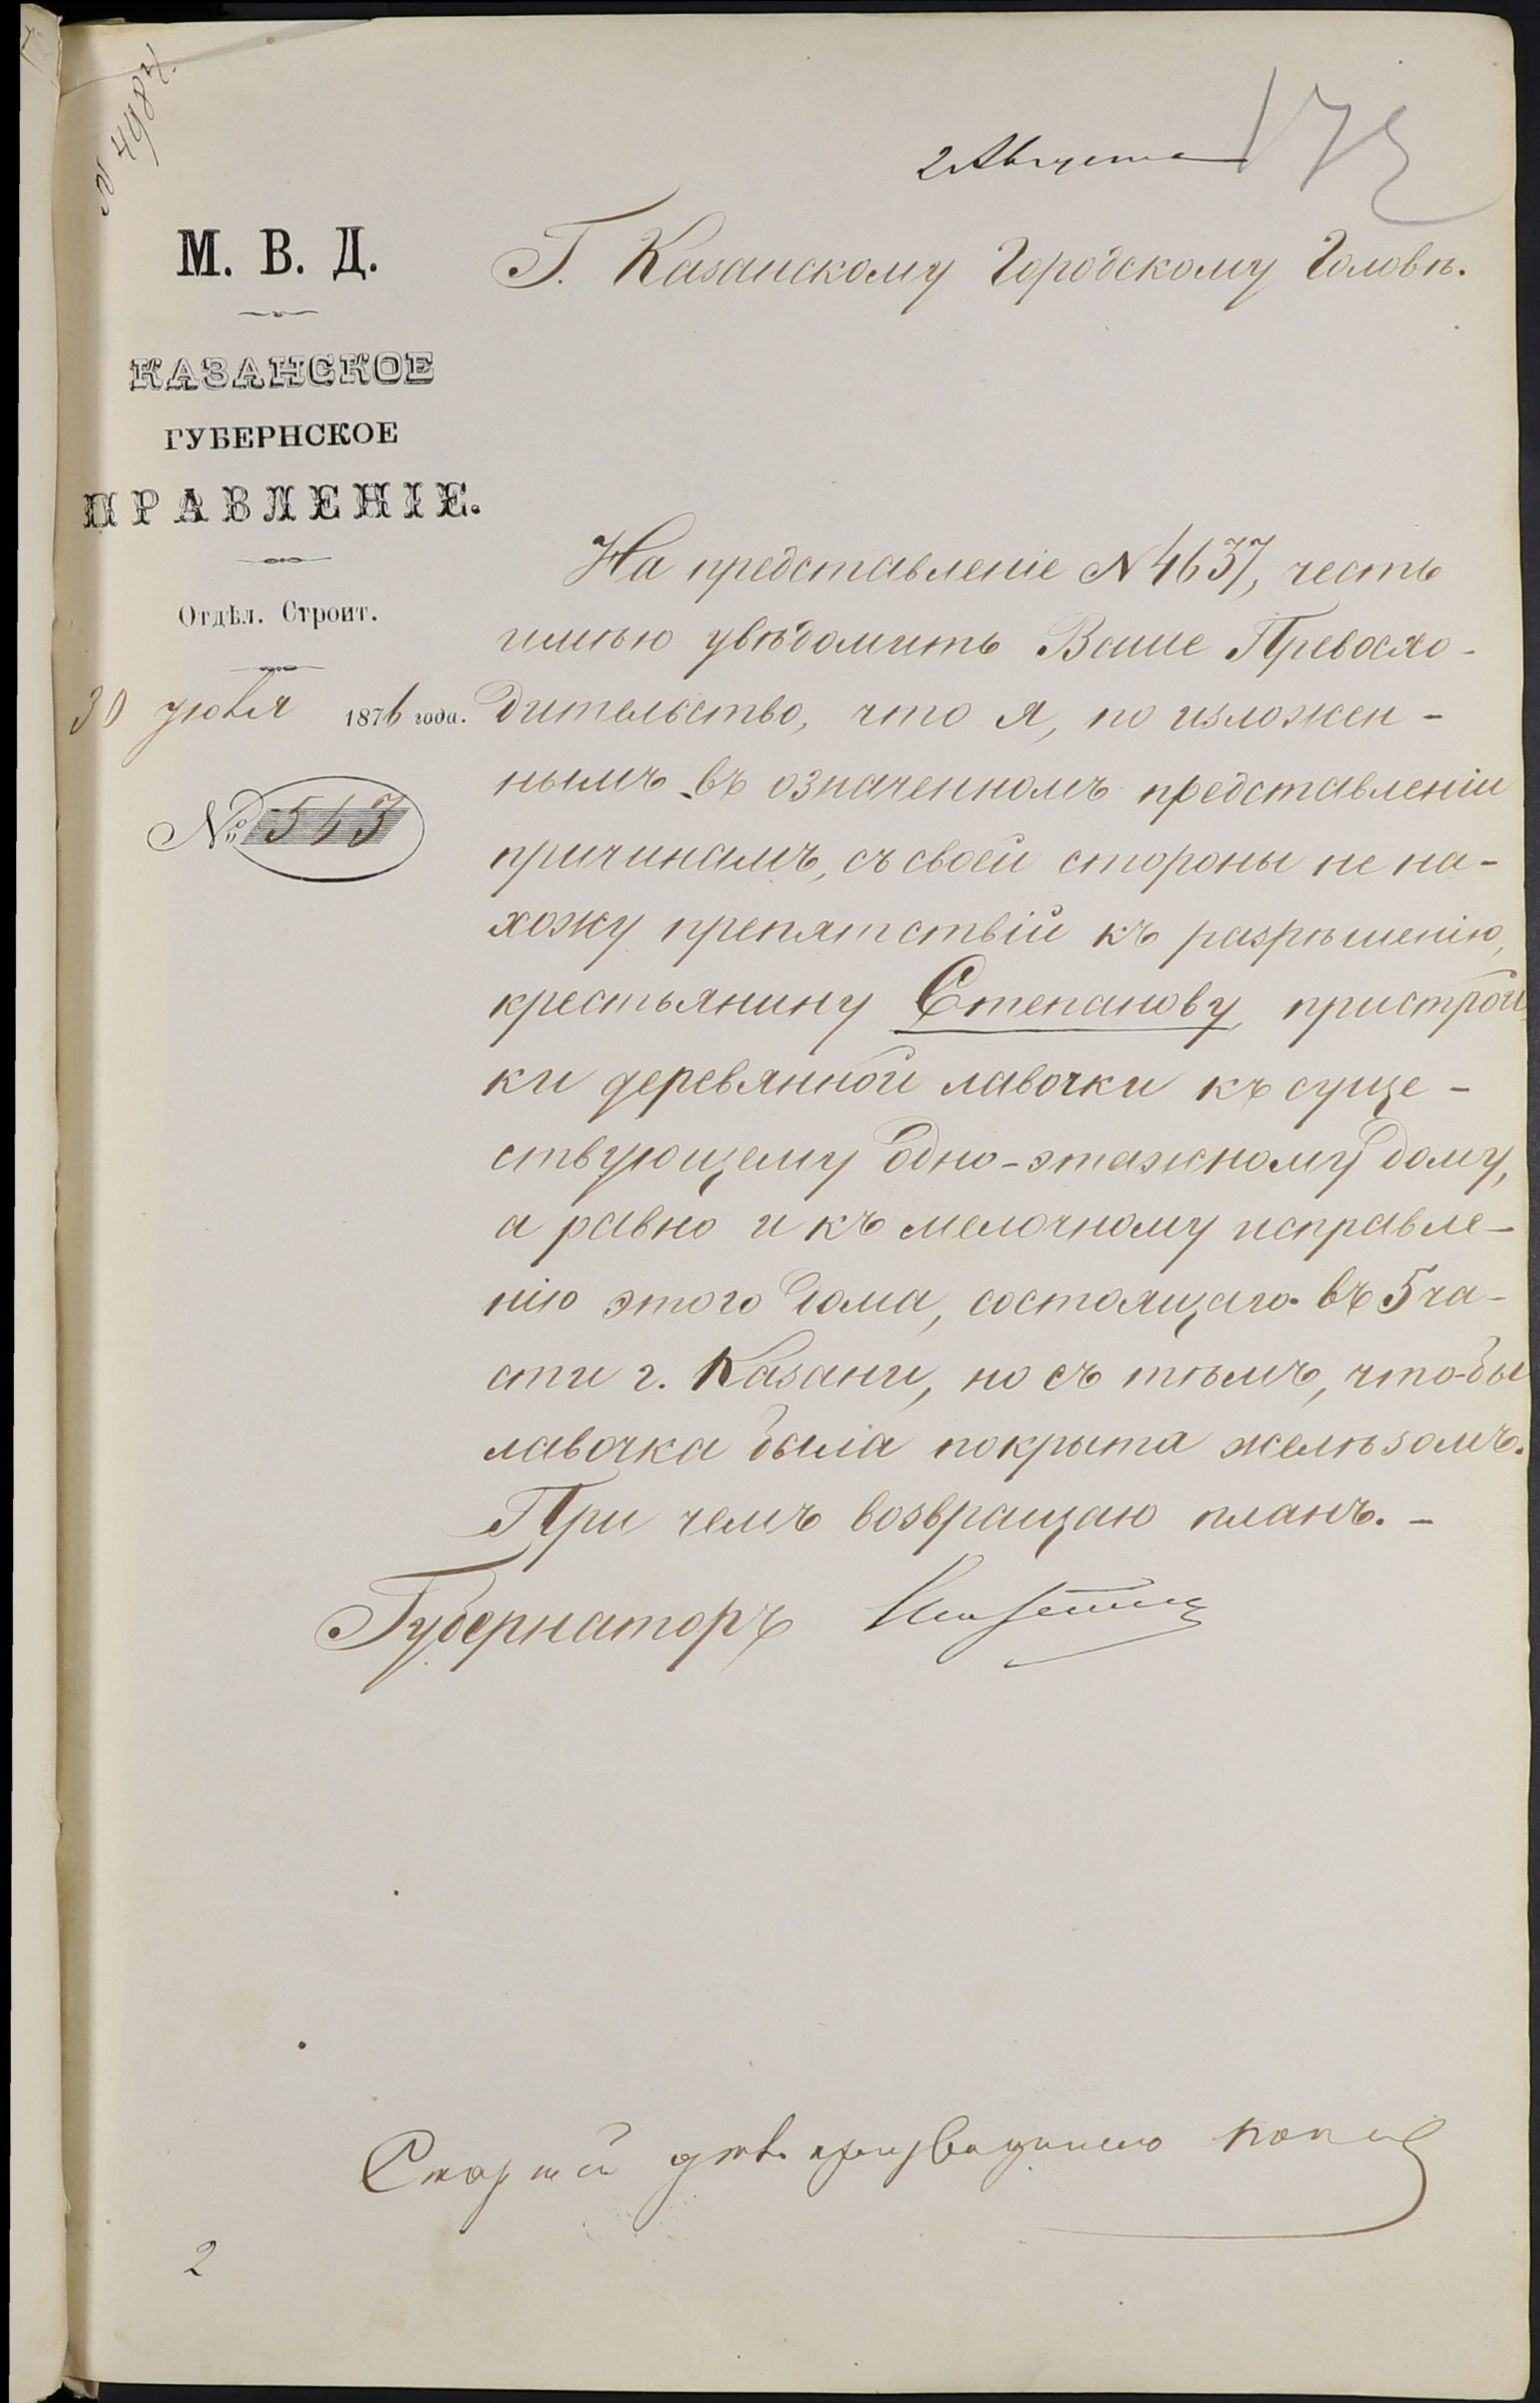 N 4984.
2 Августа
175
М. В. Д.
КАЗАНСКОЕ
ГУБЕРНСКОЕ
ПРАВЛЕНІЕ.
Отдѣл. Строит.
30 іюля 1876 года.
№ 543
Г. Казанскому Городскому Головѣ.
На представленіе N 4637, честь
имѣю увѣдомить Ваше Превосхо-
дительство, что я, по изложен-
нымъ въ означенномъ представленіи
причинамъ, съ своей стороны не на-
хожу препятствій къ разрѣшенію,
крестьянину Степанову, пристрой-
ки деревянной лавочки къ суще-
ствующему одно-этажному дому,
а равно и къ мелочному исправле-
нію этого дома, состоящаго въ 5 ча-
сти г. Казани, но съ тѣмъ, что-бы
лавочка была покрыта желѣзомъ.
При чемъ возвращаю планъ. -
Губернаторъ
2